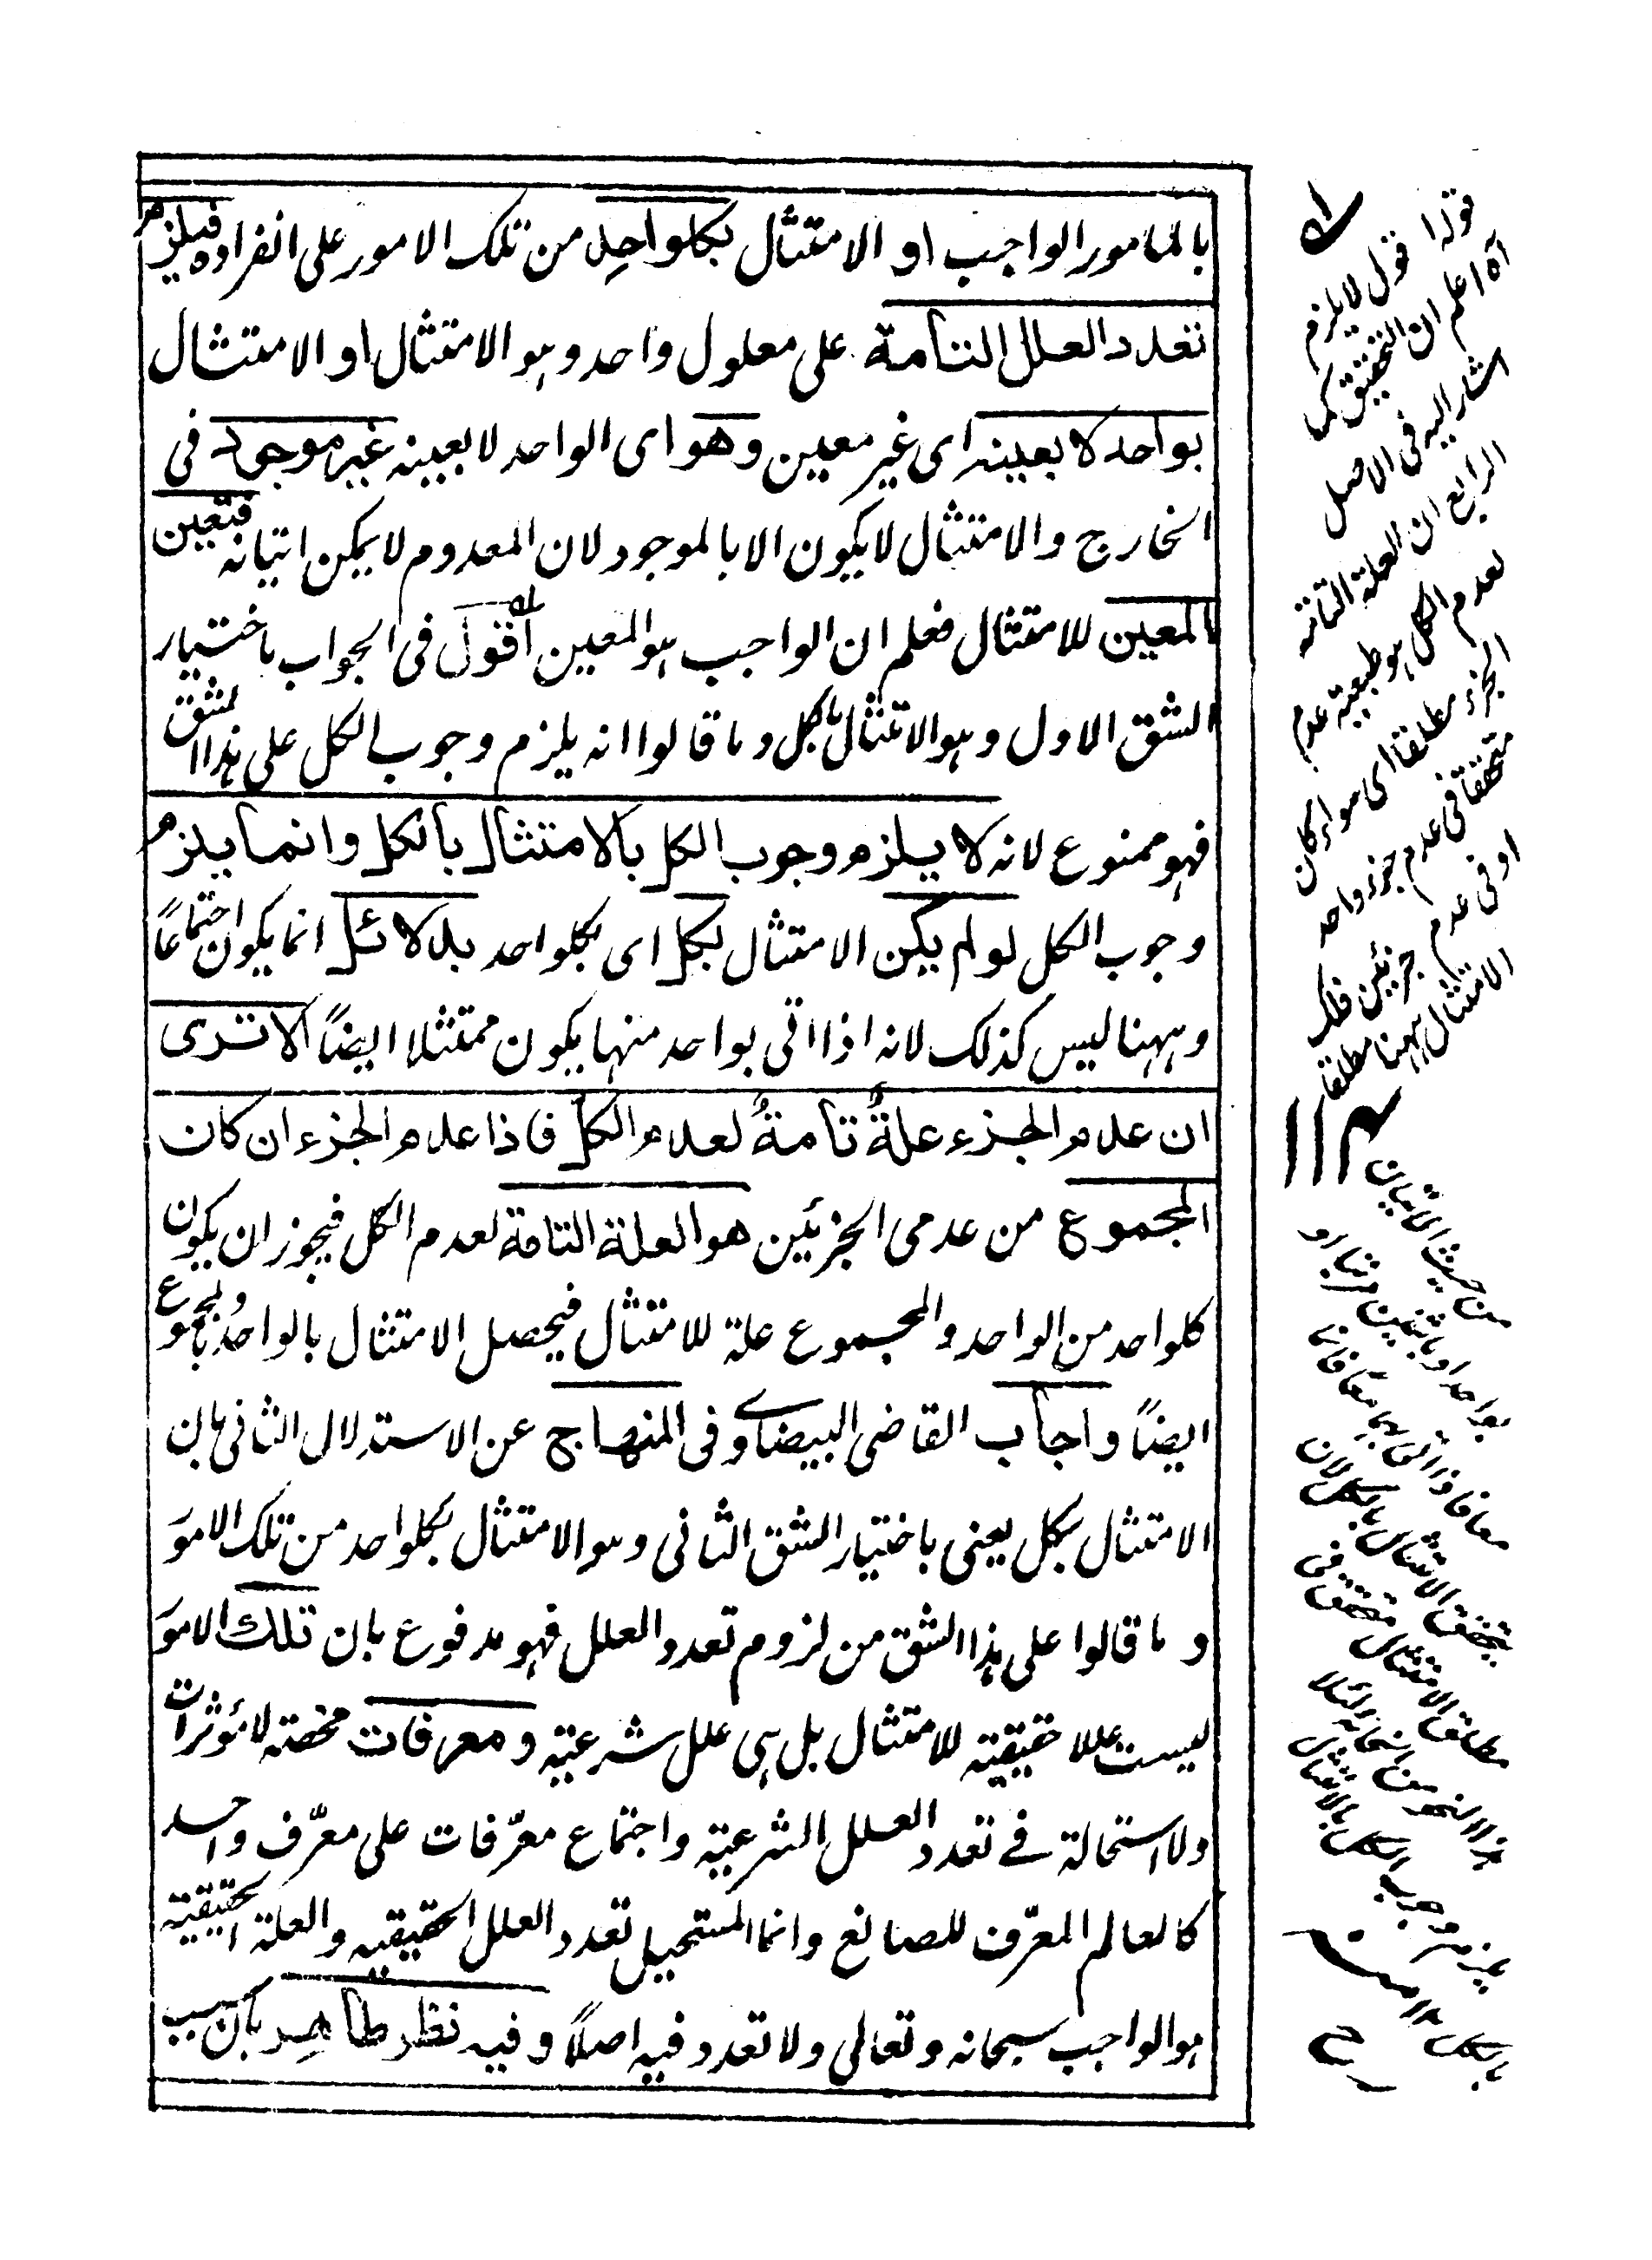 بالمامور الواجب او الامتثال بكلواحد من تلك الامور على انفراده فيلزم
تعدد العلل التامة على معلول واحد وهو الامتثال او الامتثال
بواحد لا بعينه اى غير معين وهو اى الواحد لا بعينه غير موجود فى
الخارج والامتثال لا يكون الا بالموجود لان المعدوم لا يمكن اتيانه فتعين
المعين للامتثال فعلم ان الواجب هو المعين اقول فى الجواب باختيار
الشق الاول وهو الامتثال بالكل وما قالوا انه يلزم وجوب الكل على هذا الشق
فهو ممنوع لانه لا يلزم وجوب الكل بالامتثال بالكل وانما يلزم
وجوب الكل لو لم يكن الامتثال بكل اى بكلواحد بدلا بل انما يكون اجتماعاً
وههنا ليس كذلك لانه اذا اتى بواحد منها يكون ممتثلا ايضاً الا ترى
ان عدم الجزء علةٌ تامةٌ لعدم الكل فاذا عدم الجزءان كان
المجموع من عدمى الجزئين هو العلة التامة لعدم الكل فيجوز ان يكون
كلواحد من الواحد والمجموع علة للامتثال فيحصل الامتثال بالواحد وبالمجموع
ايضاً واجاب القاضى البيضاوى فى المنهاج عن الاستدلال الثانى بان
الامتثال بكل يعنى باختيار الشق الثانى وهو الامتثال بكلواحد من تلك الامور
وما قالوا على هذا الشق من لزوم تعدد العلل فهو مدفوع بان تلك الامور
ليست عللا حقيقية للامتثال بل هى علل شرعية ومعرفات محضة لا مؤثرات
ولا استحالة فى تعدد العلل الشرعية واجتماع معرّفات على معرّف واحد
كالعالم المعرّف للصانع وانما المستحيل تعدد العلل الحقيقية والعلة الحقيقية
هو الواجب سبحانه وتعالى ولا تعدد فيه اصلاً وفيه نظر ظاهر بان سبب
قوله اقول لا يلزم
آه اعلم ان التحقيق كما
اشار اليه فى الاصل
الرابع ان العلة التامة
لعدم الكل هو طبيعة عدم
الجزء مطلقا اى سواء كان
متحققا فى عدم جزء واحد
او فى عدم جزئين فكذلك
الامتثال ههنا مطلقا
من حيث الاتيان
بواحد او باثنين
معا فاذا اتى بهما
يتحقق الامتثال بالكل لان
مطلق الامتثال متحقق فى